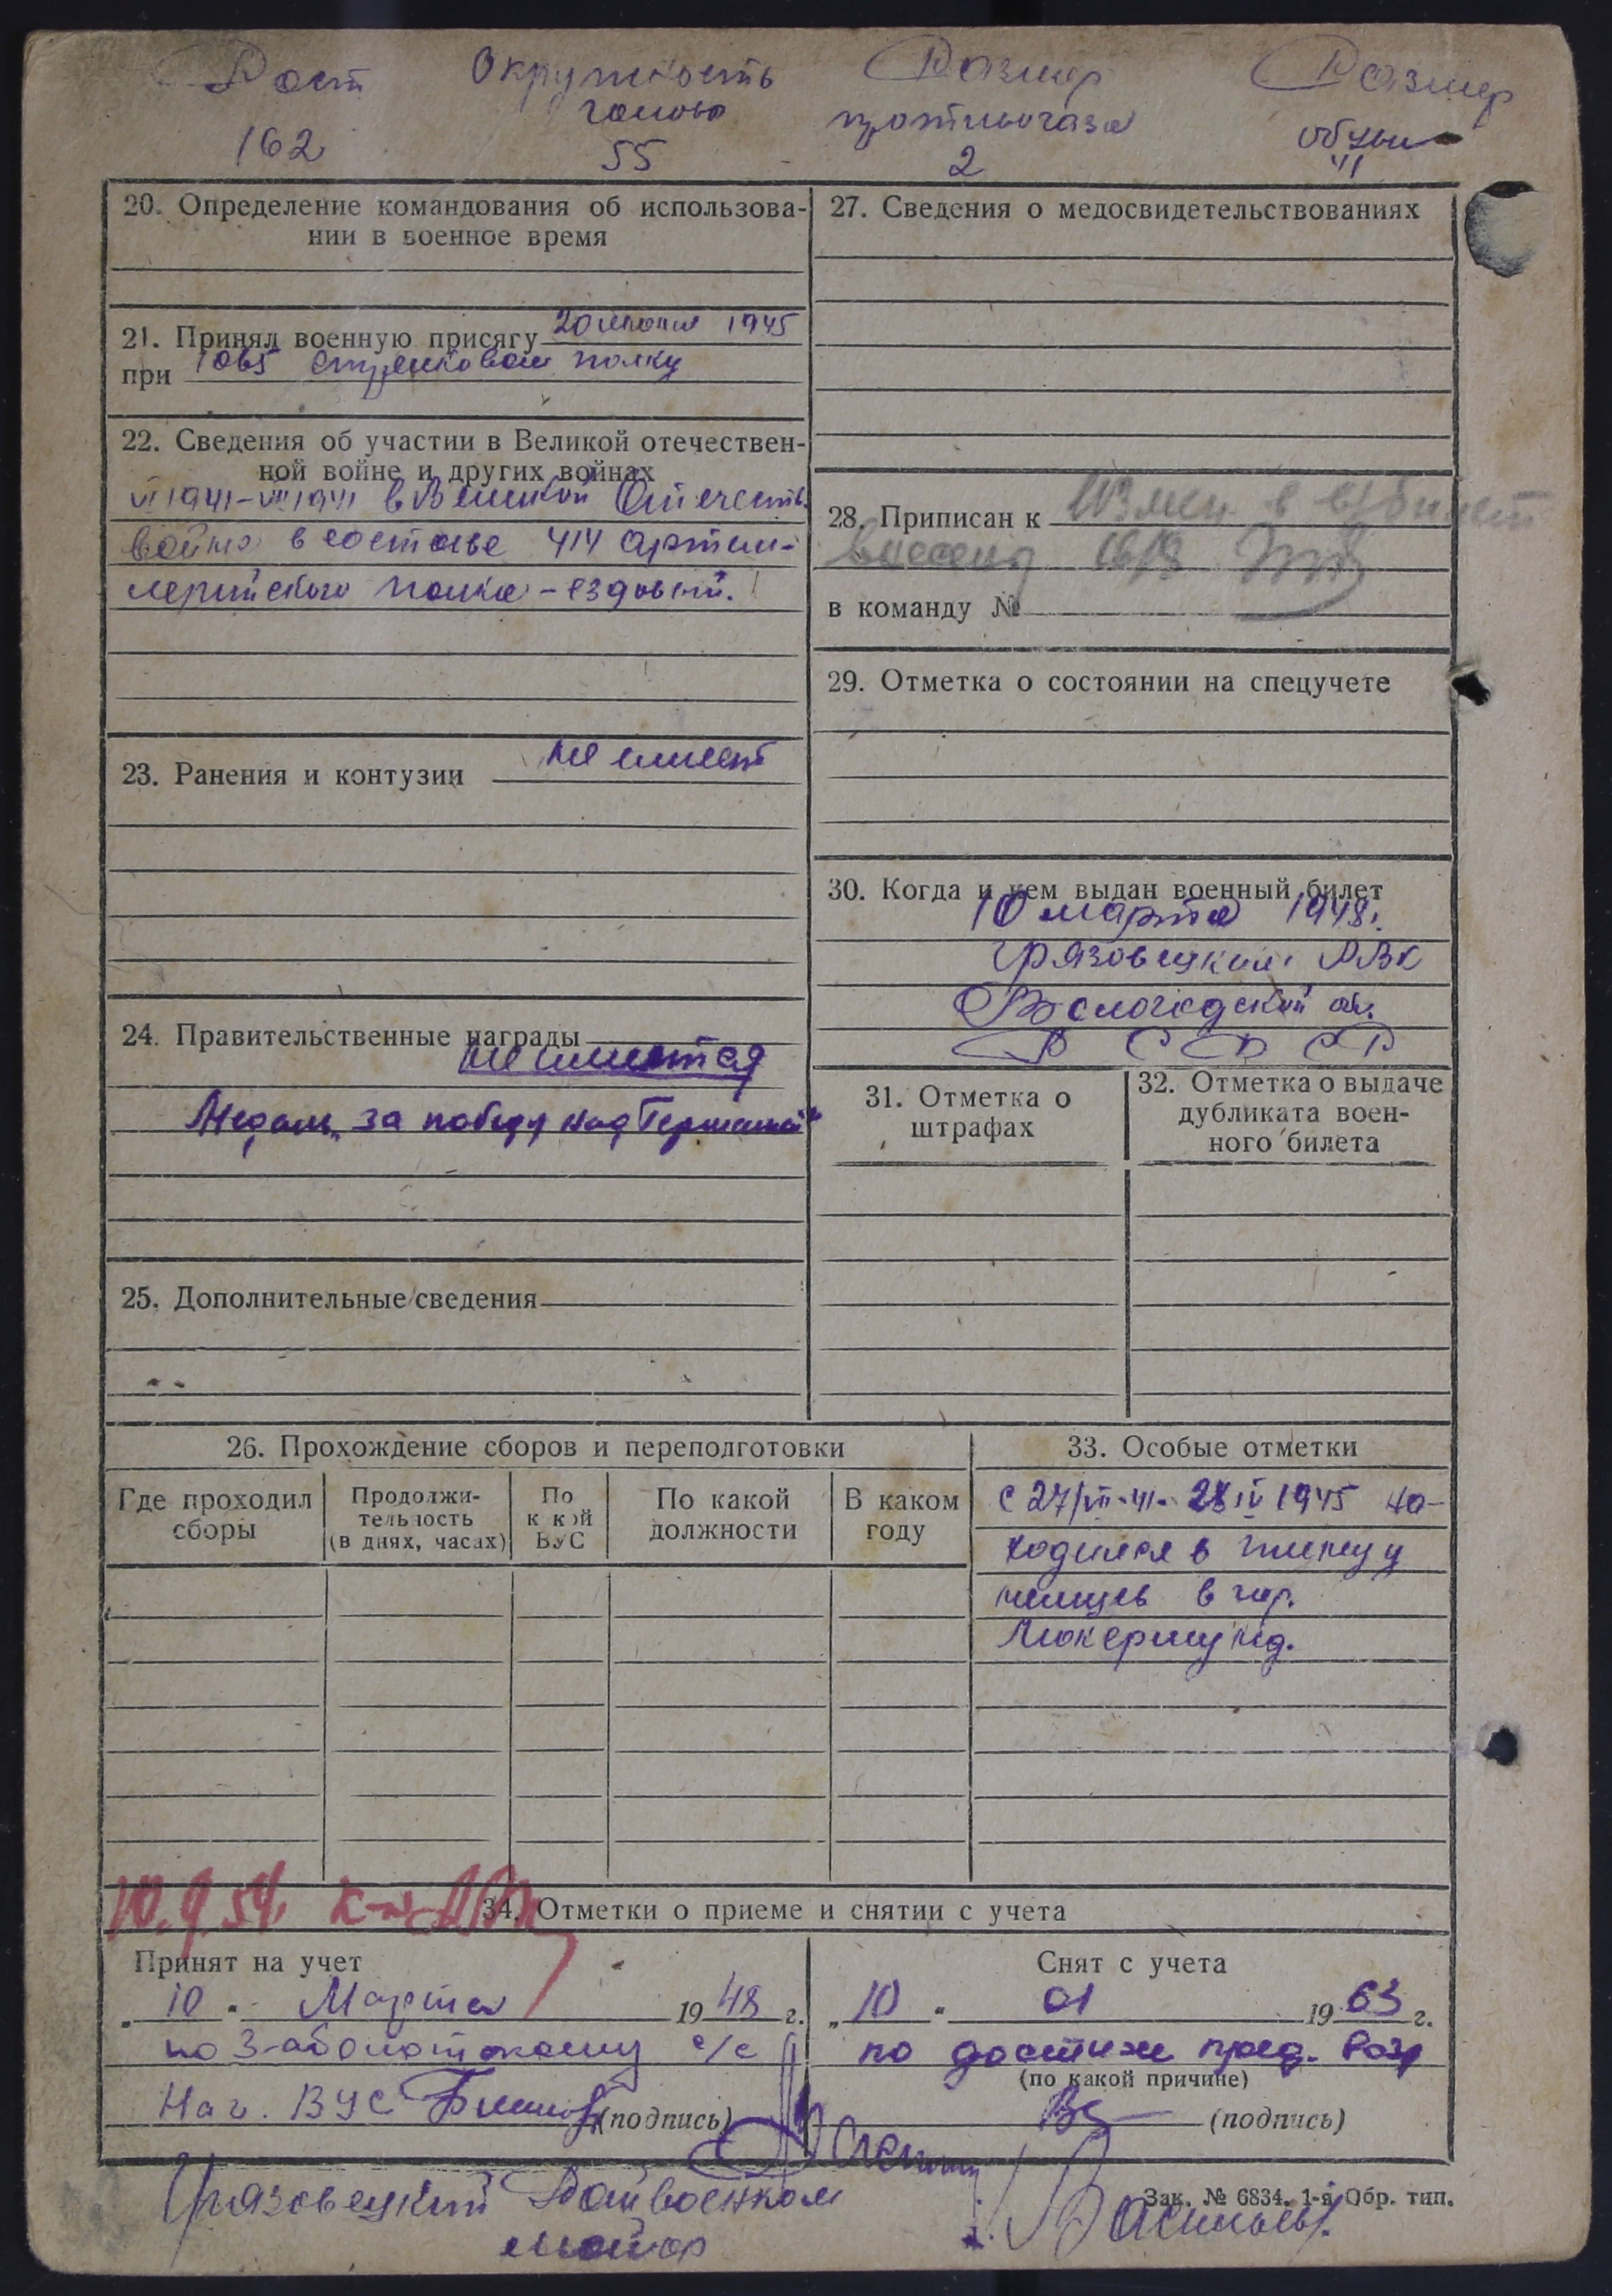 Рост Окружность Размер Размер
головы противогаза обуви
162 55 2 41
20. Определение командования об использова-
нии в военное время
21. Принял военную присягу 20 июня 1945
при 1065 стрелковом полку
22. Сведения об участии в Великой отечествен-
ной войне и других войнах
VI 1941-VII 1941 в Великой Отечеств.
война в составе 414 артил-
лерийского полка - ездовый.
23. Ранения и контузии не имеет
24. Правительственные награды
не имеется
Медаль „За победу над Германией"
25. Дополнительные сведения
27. Сведения о медосвидетельствованиях
28. Приписан к
внесены
в команду №
29. Отметка о состоянии на спецучете
30. Когда и кем выдан военный билет
10 марта 1948г.
Грязовецкий РВК
Вологодской об.
РСФСР
31. Отметка о
штрафах
32. Отметка о выдаче
дубликата воен-
ного билета
26. Прохождение сборов и переподготовки
Где проходил
сборы
Продолжи-
тельность
(в днях, часах)
По
к кой
ВУС
По какой
должности
В каком
году
33. Особые отметки
с 27/VII-41- 28 IV 1945 на-
ходился в плену у
немцев в гор.
Люкермунд.
10.9.54.
34. Отметки о приеме и снятии с учета
Принят на учет
„10" Марта 1948 г.
по Заболотскому с/с
Нач. ВУС (подпись)
Снят с учета
„10" 01 1963 г.
по достиж пред. воз
(по какой причине)
(подпись)
Грязовецкий Райвоенком
майор
Зак. № 6834. 1-я Обр. тип.